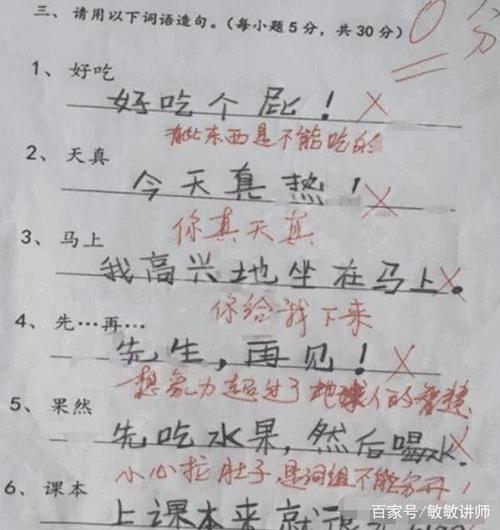 三、请用以下词语造句。（每小题5分，共30分）0分
1、好吃
好吃个屁！
有些东西是不能吃的
2、天真
今天真热！
你真天真
3、马上
我高兴地坐在马上。
你给我下来
4、先…再…
先生，再见！
想象力超过了地球人的智慧
5、果然
先吃水果，然后喝水.
小心拉肚子，是词组不能分开！
6、课本
上课本来就
百家号/敏敏讲师